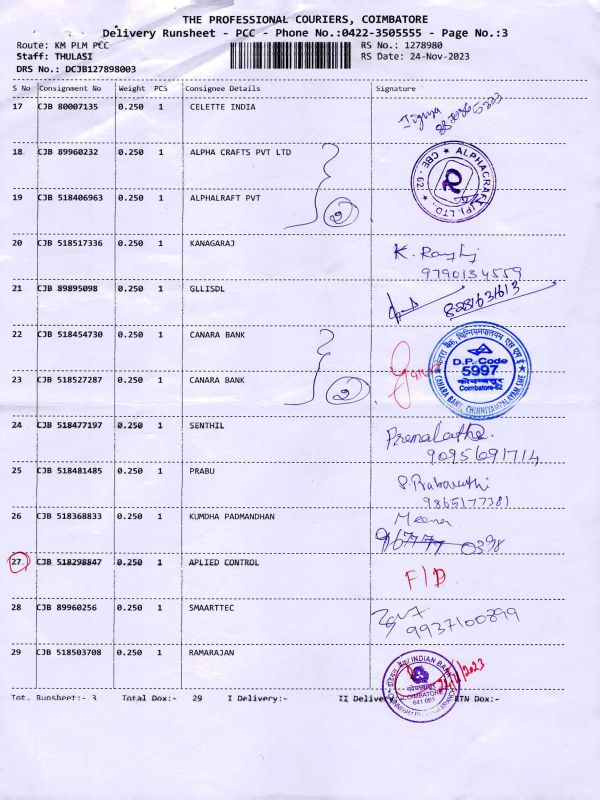 THE PROFESSIONAL COURIERS, COIMBATORE
Delivery Runsheet - PCC - Phone No.:0422-3505555 - Page No.:3
Route: KM PLM PCC
RS No.: 1278980
Staff: THULASI
RS Date: 24-Nov-2023
DRS No.: DCJB127898003
S No Consignment No Weight PCS Consignee Details Signature
17 CJB 80007135 0.250 1 CELETTE INDIA
18 CJB 89960232 0.250 1 ALPHA CRAFTS PVT LTD
ALPHACRAFT (P). LTD., CBE - 62
19 CJB 518406963 0.250 1 ALPHALRAFT PVT
2
20 CJB 518517336 0.250 1 KANAGARAJ
9790134559
21 CJB 89895098 0.250 1 GLLISDL
22 CJB 518454730 0.250 1 CANARA BANK
D.P. Code
5997
कोयम्बत्तूर
Coimbatore-62
CANARA BANK, CHINNIYAMPALAYAM SME
23 CJB 518527287 0.250 1 CANARA BANK
2
24 CJB 518477197 0.250 1 SENTHIL
Premalatha.
9095691714
25 CJB 518481485 0.250 1 PRABU
9865177381
26 CJB 518368833 0.250 1 KUMDHA PADMANDHAN
Meena
27 CJB 518298847 0.250 1 APLIED CONTROL
F/D
28 CJB 89960256 0.250 1 SMAARTTEC
9937100899
29 CJB 518503708 0.250 1 RAMARAJAN
INDIAN BANK
COIMBATORE
Tot. Runsheet:- 3 Total Dox:- 29 I Delivery:- II Delivery